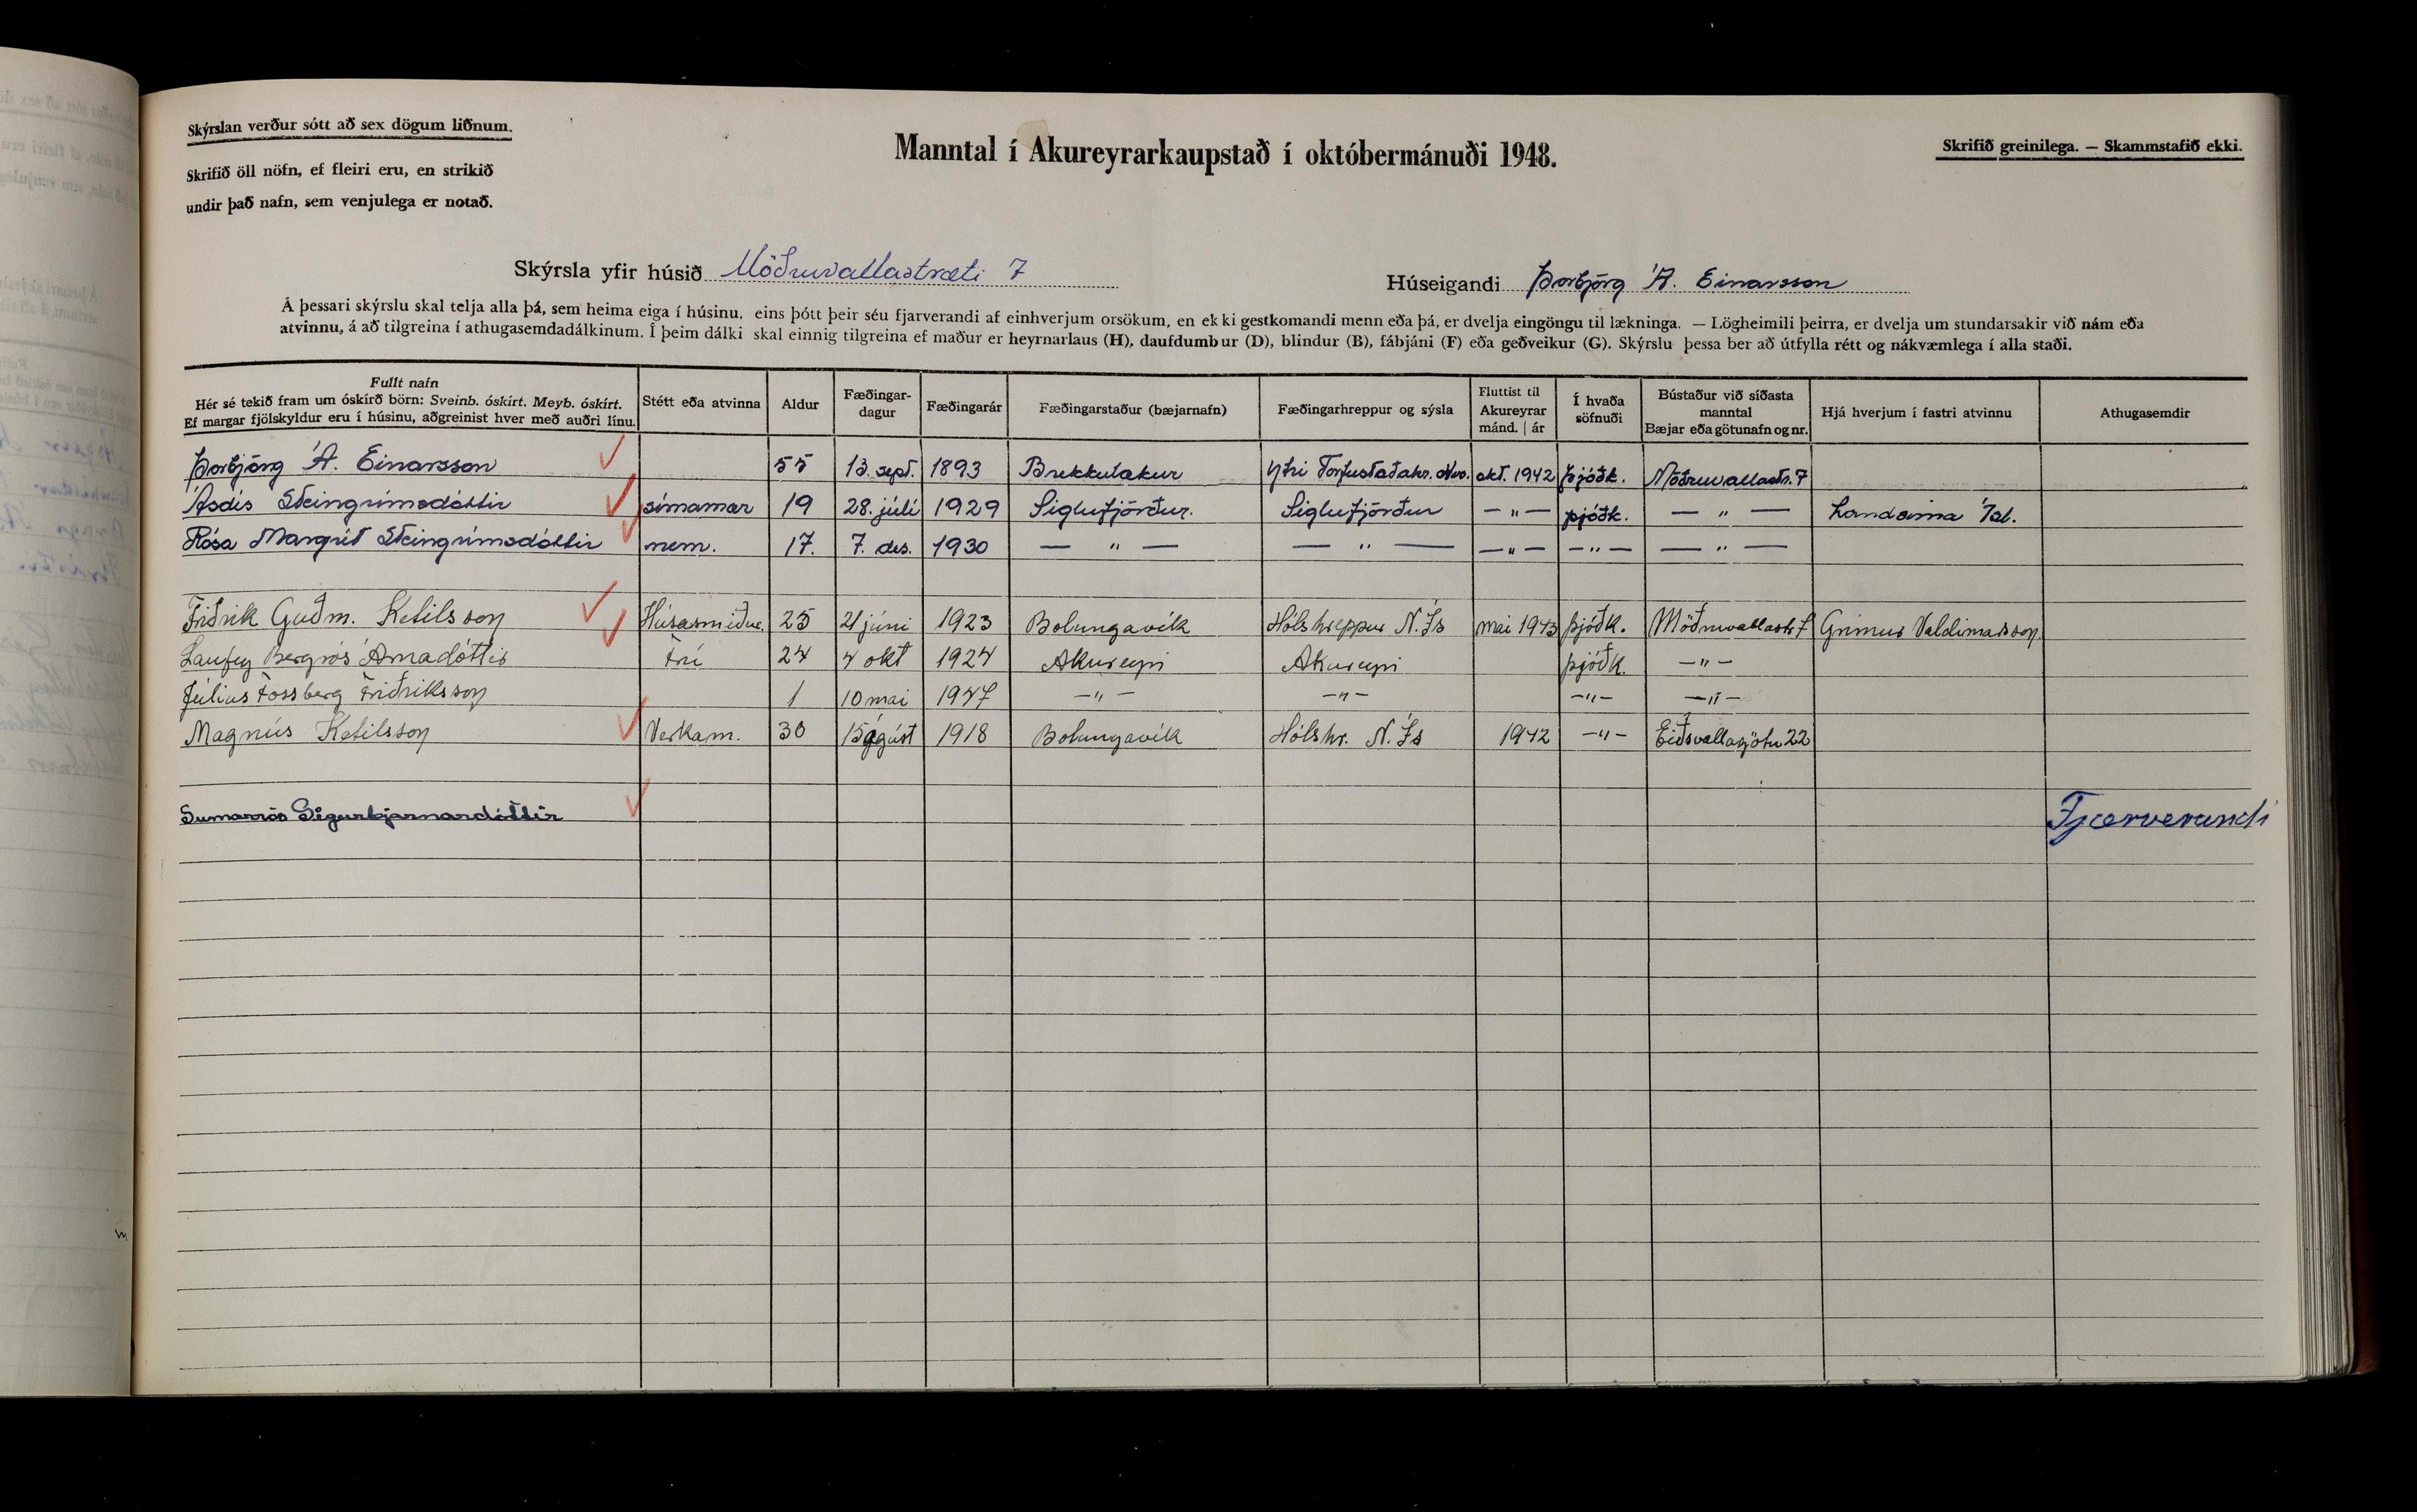 Skýrslan verður sótt að sex dögum liðnum.
Skrifið öll nöfn, ef fleiri eru, en strikið
undir það nafn, sem venjulega er notað.
Manntal í Akureyrarkaupstað í októbermánuði 1948.
Skrifið greinilega. — Skammstafið ekki.
Skýrsla yfir húsið Möðruvallastræti 7
Húseigandi Þorbjörg Á. Einarsson
Á þessari skýrslu skal telja alla þá, sem heima eiga í húsinu, eins þótt þeir séu fjarverandi af einhverjum orsökum, en ekki gestkomandi menn eða þá, er dvelja eingöngu til lækninga. — Lögheimili þeirra, er dvelja um stundarsakir við nám eða
atvinnu, á að tilgreina í athugasemdadálkinum. Í þeim dálki skal einnig tilgreina ef maður er heyrnarlaus (H), daufdumbur (D), blindur (B), fábjáni (F) eða geðveikur (G). Skýrslu þessa ber að útfylla rétt og nákvæmlega í alla staði.
Fullt nafn
Hér sé tekið fram um óskírð börn: Sveinb. óskírt. Meyb. óskírt.
Ef margar fjölskyldur eru í húsinu, aðgreinist hver með auðri línu.
Stétt eða atvinna
Aldur
Fæðingar-
dagur
Fæðingarár
Fæðingarstaður (bæjarnafn)
Fæðingarhreppur og sýsla
Fluttist til
Akureyrar
mánd. | ár
Í hvaða
söfnuði
Bústaður við síðasta
manntal
Bæjar eða götunafn og nr.
Hjá hverjum í fastri atvinnu
Athugasemdir
Þorbjörg Á. Einarsson 55 13. sept. 1893 Brekkulækur Ytri Torfustaðahr. Hvs. okt. 1942 þjóðk. Möðruvallastr. 7
Ásdís Steingrímsdóttir símamær 19 28. júlí 1929 Siglufjörður. Siglufjörður — " — þjóðk. — " — Landsíma Ísl.
Rósa Margrét Steingrímsdóttir nem. 17. 7. des. 1930 — " — — " — — " — — " — — " —
Friðrik Guðm. Ketilsson Húsasmiður 25 21 júni 1923 Bolungavík Hólshreppur N.Ís mai 1943 þjóðk. Möðruvallastr 7 Grímur Valdimarsson
Laufey Bergrós Árnadóttir Frú 24 4 okt 1924 Akureyri Akureyri þjóðk. — " —
Júlíus Fossberg Friðriksson 1 10 mai 1947 — " — — " — — " — — " —
Magnús Ketilsson Verkam. 30 15 ágúst 1918 Bolungavík Hólshr. N.Ís 1942 — " — Eiðsvallagötu 22
Sumarrós Sigurbjarnardóttir Fjærverandi